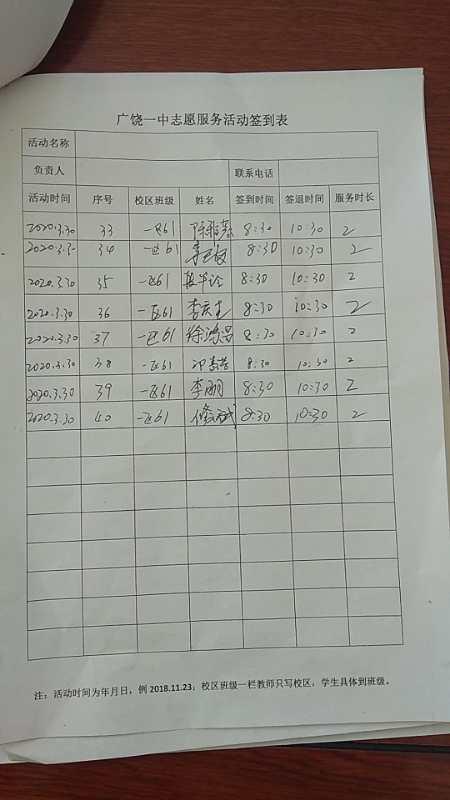 广饶一中志愿服务活动签到表
活动名称
负责人 联系电话
活动时间 序号 校区班级 姓名 签到时间 签退时间 服务时长
2020.3.30 33 一区61 8:30 10:30 2
2020.3.30 34 一区61 8:30 10:30 2
2020.3.30 35 一区61 8:30 10:30 2
2020.3.30 36 一区61 8:30 10:30 2
2020.3.30 37 一区61 徐鸿昌 8:30 10:30 2
2020.3.30 38 一区61 8:30 10:30 2
2020.3.30 39 一区61 李明 8:30 10:30 2
2020.3.30 40 一区61 8:30 10:30 2
注：活动时间为年月日，例 2018.11.23；校区班级一栏教师只写校区，学生具体到班级。